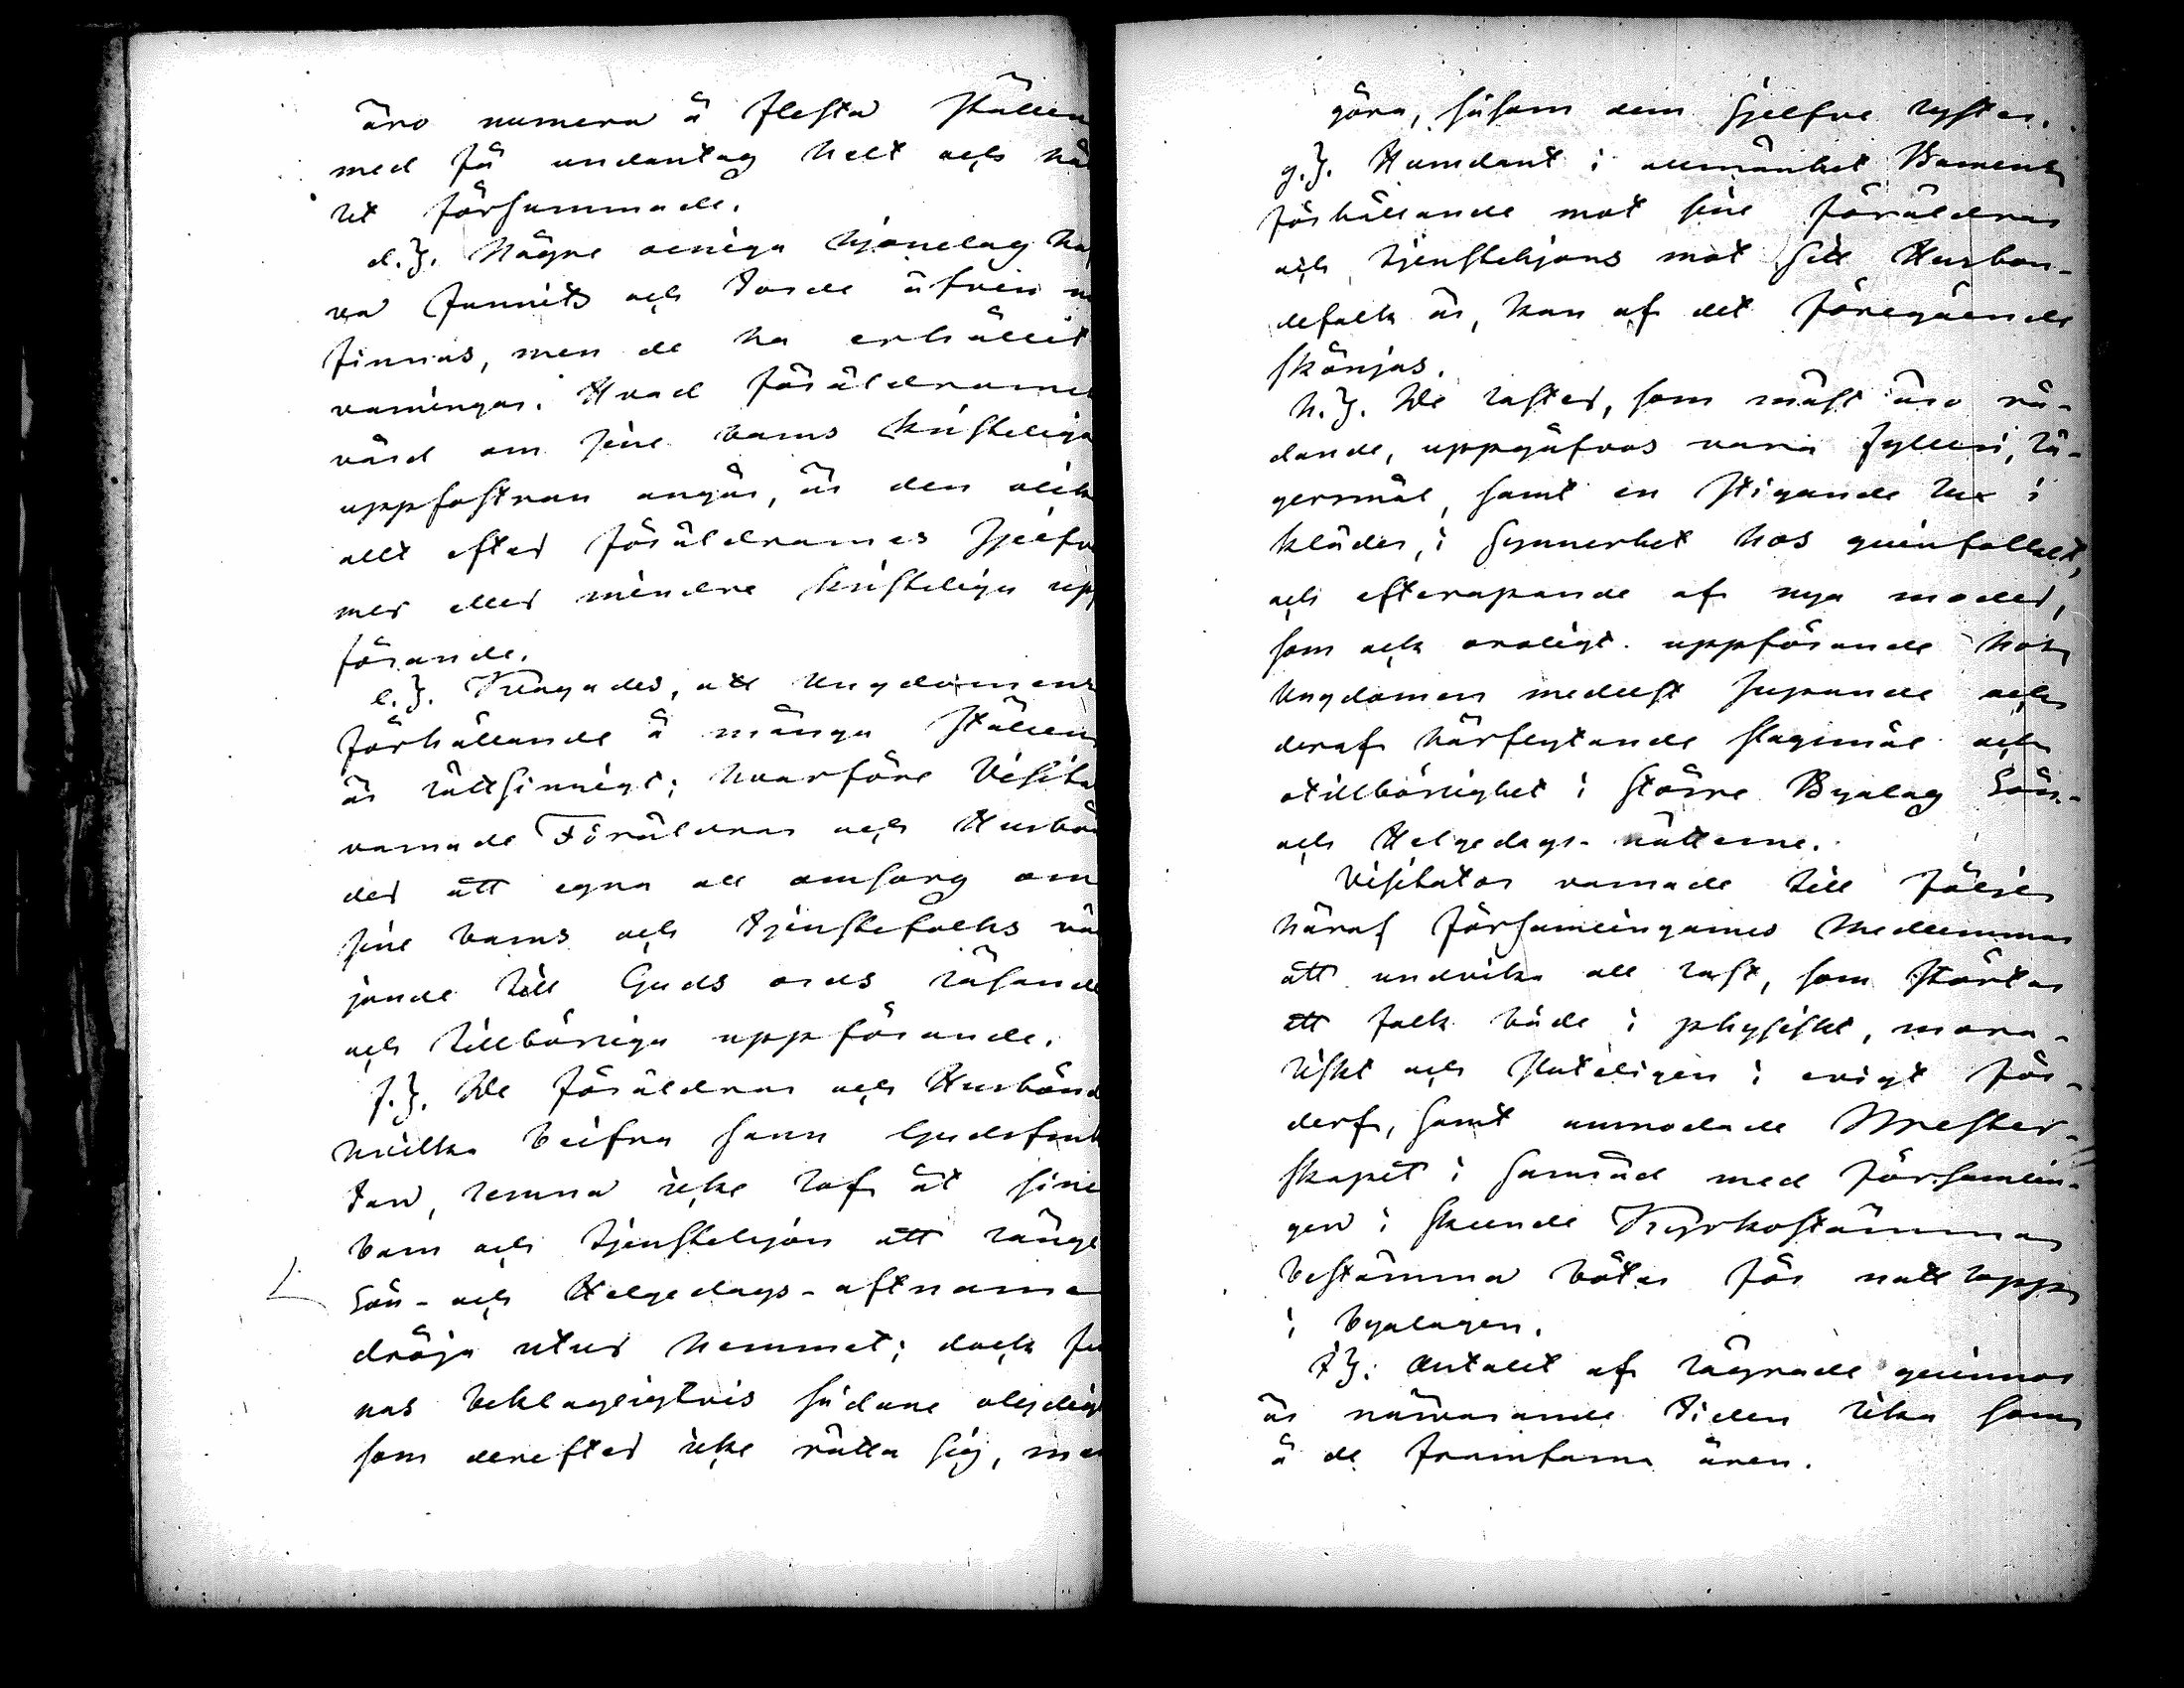 äro numera å flesta ställen
med få undantag helt och hål
let försummade.
d.). Någre oeniga hjonelag haf
va funnits och torde äfven nu
finnas, men de ha erhållit
varningar. Hvad föräldrarnes
vård om sine barns kristeliga
uppfostran angår, är den olik
allt efter föräldrarnes sjelfva
mer eller mindre kristeliga upp
förande.
e.). Klagades, att Ungdomens
förhållande å många ställen
är lättsinnigt; hvarföre Visita
varnade Föräldrar och Husbön
der att egna all omsorg om
sine barns och tjenstefolks vän
jande till Guds ords läsande
och tillbörliga uppförande.
f.). De föräldrar och Husbönd
hvilka beifra sann Gudsfruk
tan, lemna icke lof åt sine
barn och tjenstehjon att länge
Sön- och Helgedags-aftnarne
dröja utur hemmet; dock fin
nas beklagligtvis sådane olydige
som derefter icke rätta sig, men
göra, såsom dem sjelfve lyster.
g.). Hurudant i allmänhet Barnens
förhållande mot sine föräldrar
och tjenstehjons mot sitt Husbon-
defolk är, kan af det föregående
skönjas.
h.). De laster, som mäst äro rå-
dande, uppgåfvos vara fylleri, lä-
gersmål, samt en stigande lux i
kläder, i synnerhet hos qvinfolket,
och efterapande af nya moder,
som ock oroligt uppförande hos
Ungdomen medelst supande och
deraf härflytande slagsmål och
otillbörlighet i större Byalag Sön-
och Helgedags-nätterne.
Visitator varnade till följe
häraf församlingarnes Medlemmar
att undvika all last, som störtar
ett folk både i physiskt, mora-
liskt och sluteligen i evigt för-
derf, samt anmodade Prester-
skapet i samråd med församlin-
gen i skeende Kyrkostämmor
bestämma böter för nattlopp
i byalagen.
i). Antalet af lägrade qvinnor
är närvarande tiden lika som
å de framfarna åren.